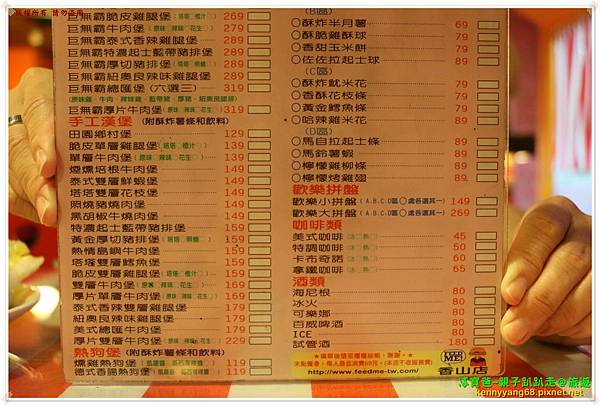 版權所有 請勿盜用
巨無霸脆皮雞腿堡 269
巨無霸牛肉堡 279
巨無霸泰式香辣雞腿堡 289
巨無霸特濃起士藍帶豬排堡 289
巨無霸厚切豬排堡 289
巨無霸紐奧良辣味雞腿堡 289
巨無霸總匯堡 (六選三) 319
巨無霸厚片牛肉堡 319
手工漢堡 (附酥炸薯條和飲料)
田園鄉村堡 129
脆皮單層雞腿堡 139
單層牛肉堡 139
煙燻培根牛肉堡 149
泰式雙層鮮蝦堡 149
塔塔雙層花枝堡 149
照燒豬燒肉堡 149
黑胡椒牛燒肉堡 149
特濃起士藍帶豬排堡 159
黃金厚切豬排堡 159
熱情島嶼牛肉堡 159
塔塔雙層鱈魚堡 159
脆皮雙層雞腿堡 159
雙層牛肉堡 159
厚片單層牛肉堡 159
泰式香辣雙層雞腿堡 179
紐奧良辣味雞腿堡 179
美式總匯牛肉堡 179
厚片雙層牛肉堡 229
熱狗堡 (附酥炸薯條和飲料)
燻雞熱狗堡 119
德式香腸熱狗堡 119
(B區)
酥炸半月薯 69
酥脆雞酥球 79
香甜玉米餅 79
佐佐拉起士球 79
(C區)
酥炸魷米花 79
香酥花枝條 79
黃金鱈魚條 79
咯辣雞米花 79
(D區)
馬自拉起士條 89
馬鈴薯蝦 89
檸檬雞柳條 89
檸檬烤雞翅 89
歡樂拼盤
歡樂小拼盤 (A.B.C.D區○處各選其一) 149
歡樂大拼盤 (A.B.C.D區○處各選其一) 269
咖啡類
美式咖啡 45
特調咖啡 50
卡布奇諾 60
拿鐵咖啡 65
酒類
海尼根 80
冰火 80
可樂娜 80
百威啤酒 80
ICE 80
試管酒 180
http://www.feedme-tw.com/
香山店
滿寶爸-親子趴趴走@旅遊
kennyyang68.pixnet.net